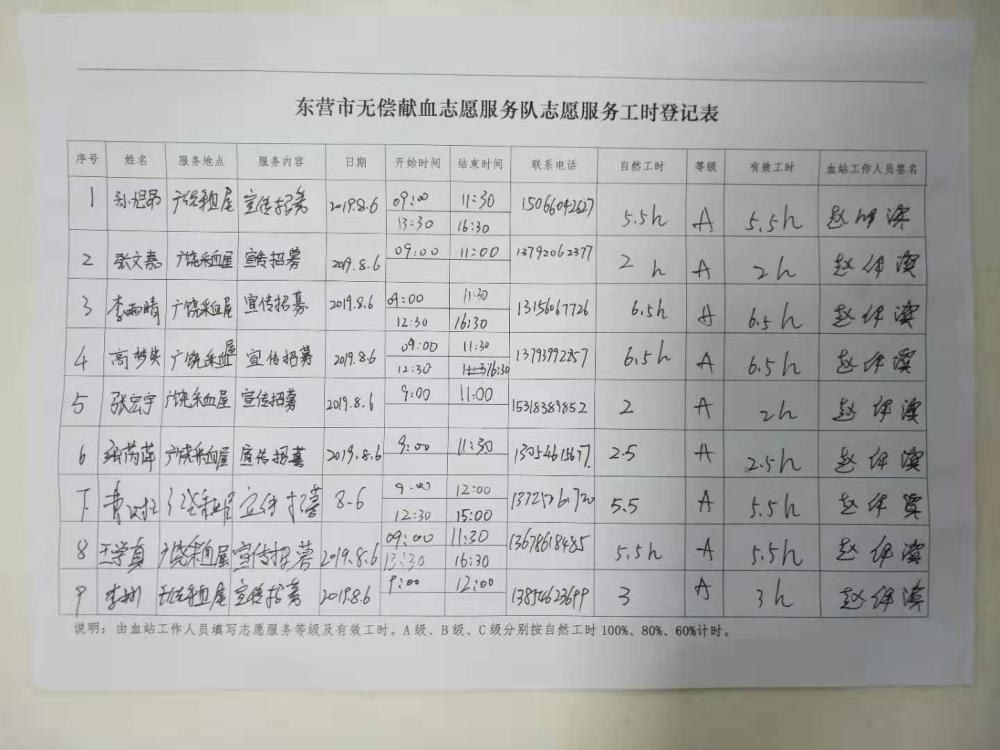 东营市无偿献血志愿服务队志愿服务工时登记表
序号 姓名 服务地点 服务内容 日期 开始时间 结束时间 联系电话 自然工时 等级 有效工时 血站工作人员签名
1 孙煜昂 广饶采血屋 宣传招募 2019.8.6 09:00 11:30 15066042627 5.5h A 5.5h 赵
13:30 16:30
2 张文嘉 广饶采血屋 宣传招募 2019.8.6 09:00 11:00 13792062377 2h A 2h 赵
3 李雨晴 广饶采血屋 宣传招募 2019.8.6 09:00 11:30 13156067726 6.5h A 6.5h 赵
12:30 16:30
4 高梦 广饶采血屋 宣传招募 2019.8.6 09:00 11:30 13793992257 6.5h A 6.5h 赵
12:30 16:30
5 张宏宇 广饶采血屋 宣传招募 2019.8.6 9:00 11:00 15318389852 2 A 2h 赵
6 芮萍 广饶采血屋 宣传招募 2019.8.6 9:00 11:30 13054615677 2.5 A 2.5h 赵
7 广饶采血屋 宣传招募 8-6 9:00 12:00 5.5 A 5.5h 赵
12:30 15:00
8 王学真 广饶采血屋 宣传招募 2019.8.6 09:00 11:30 13678618485 5.5h A 5.5h 赵
13:30 16:30
9 李 采血屋 宣传招募 2019.8.6 9:00 12:00 13854623699 3 A 3h 赵
说明：由血站工作人员填写志愿服务等级及有效工时。A级、B级、C级分别按自然工时100%、80%、60%计时。